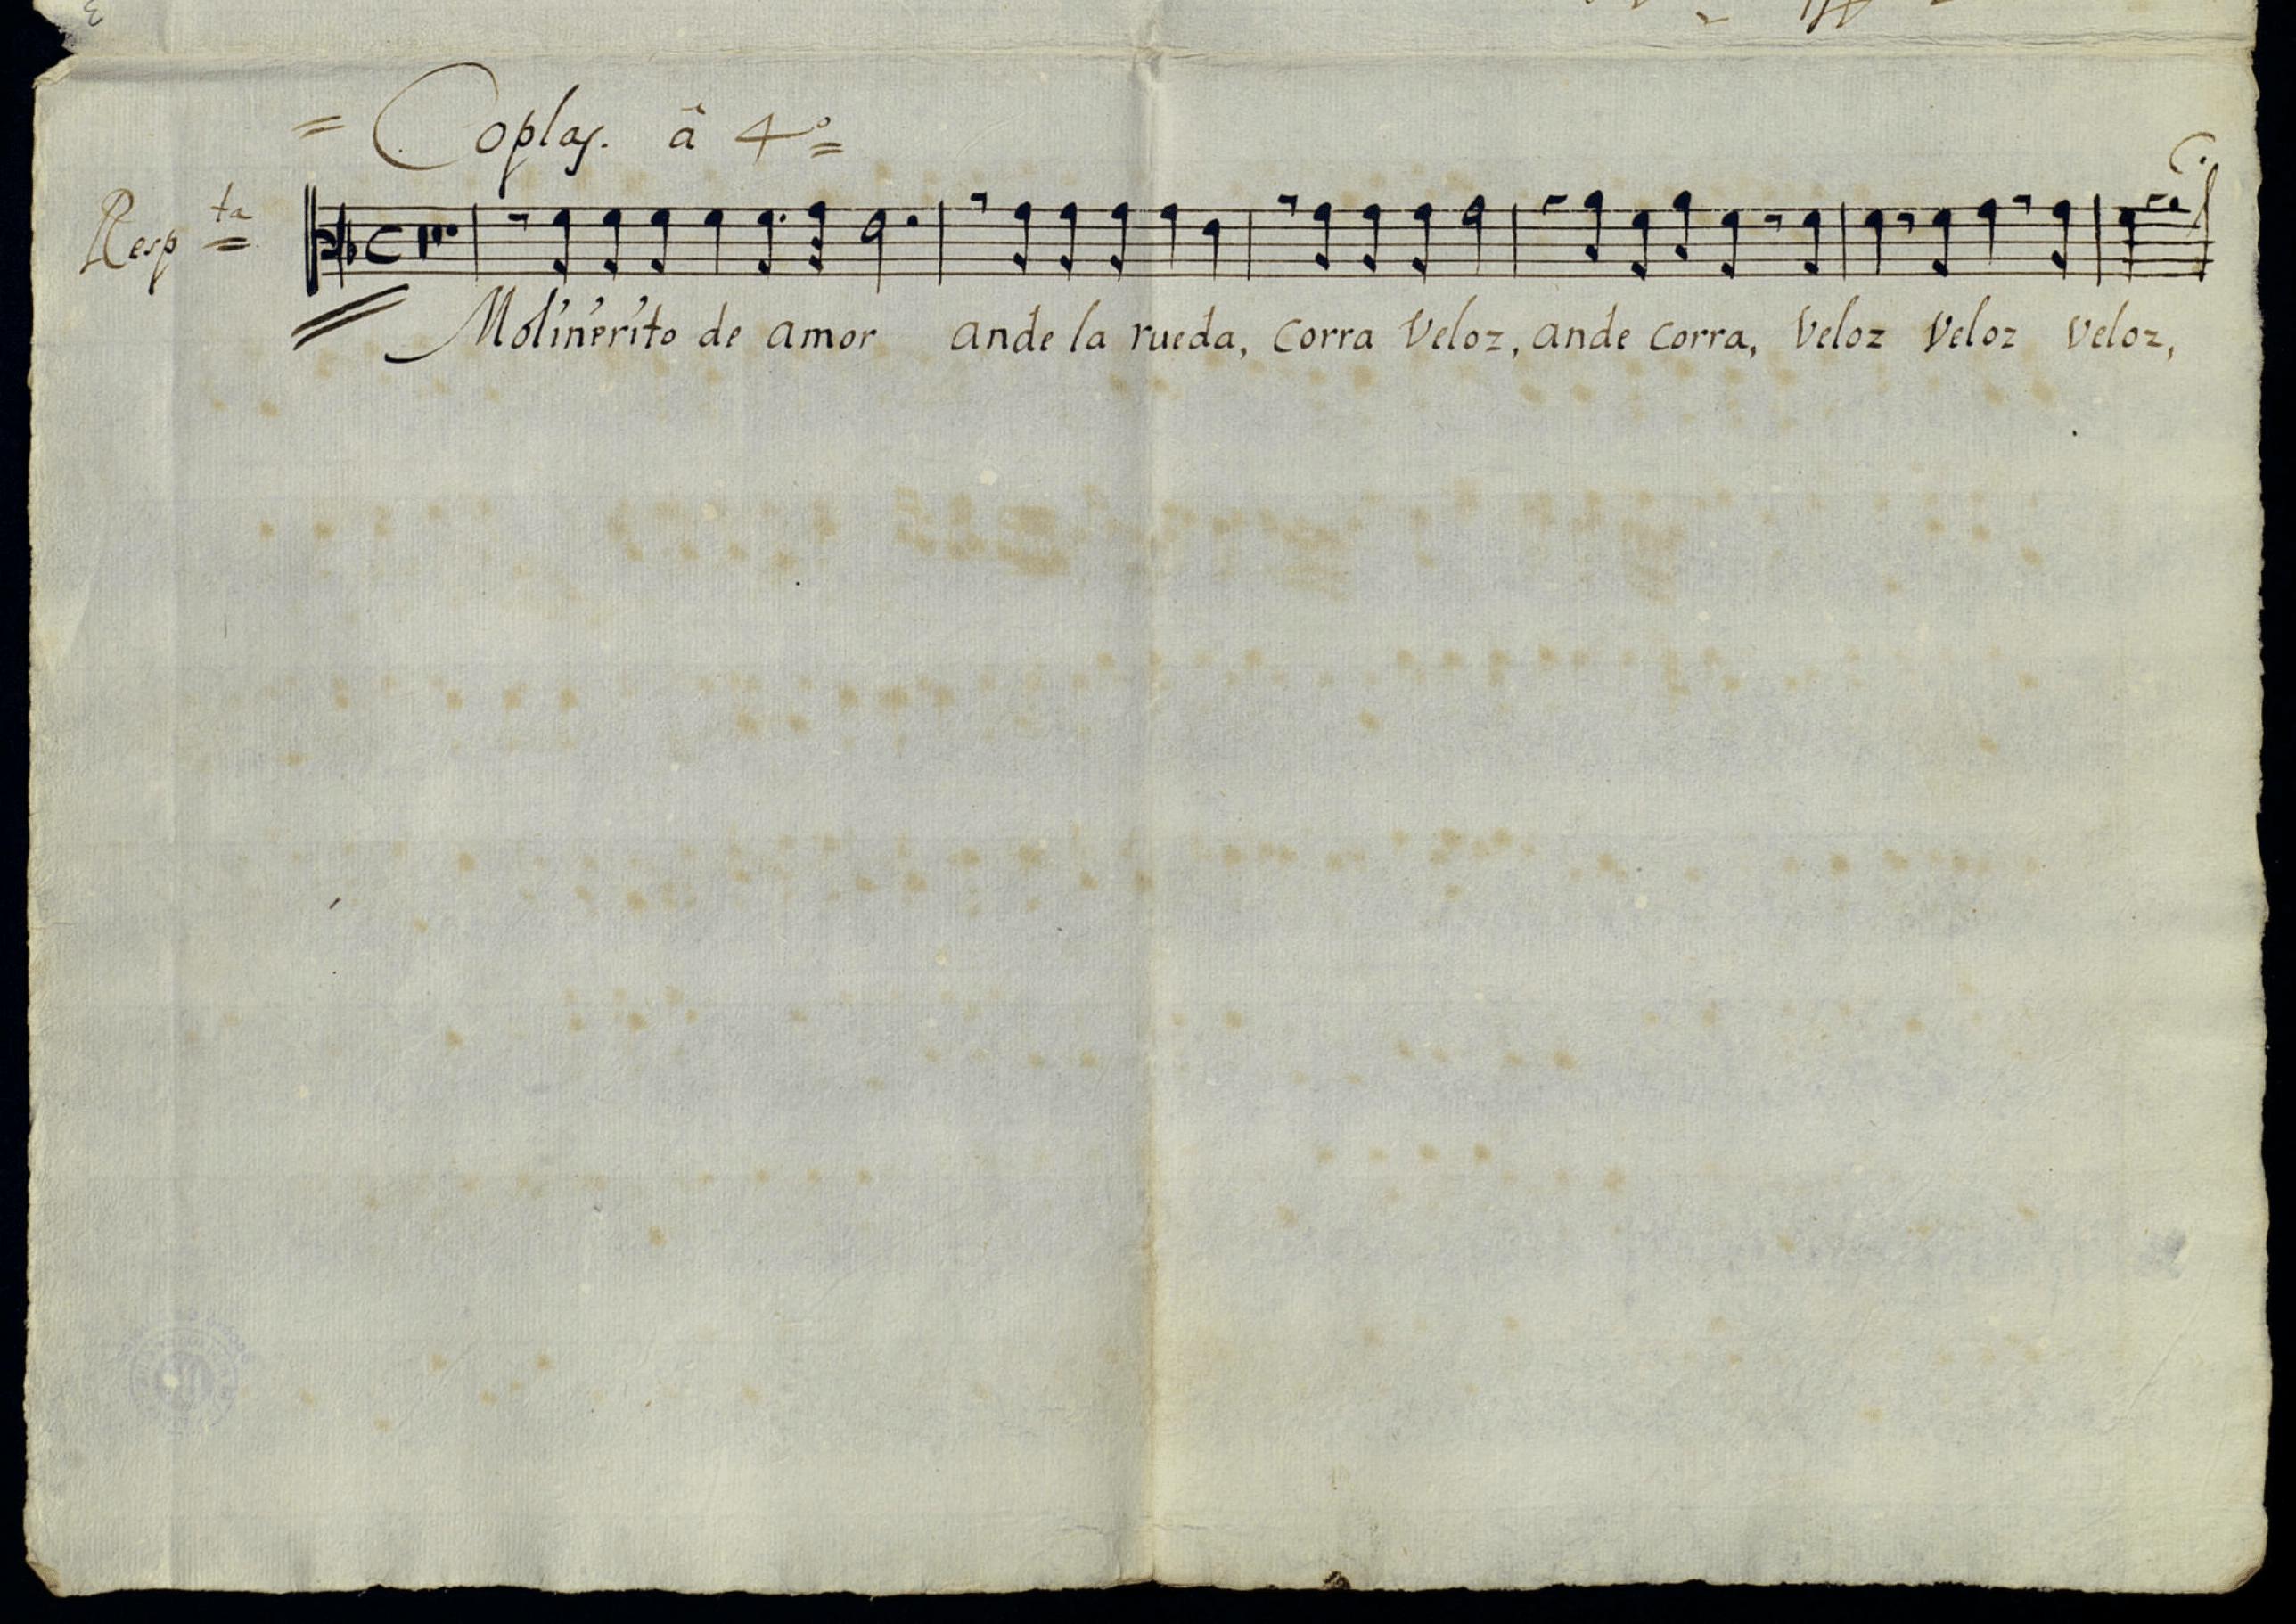 = Coplas. â 4º =
Respta =
Molinerito de amor ande la rueda, corra veloz, ande corra, veloz veloz veloz,